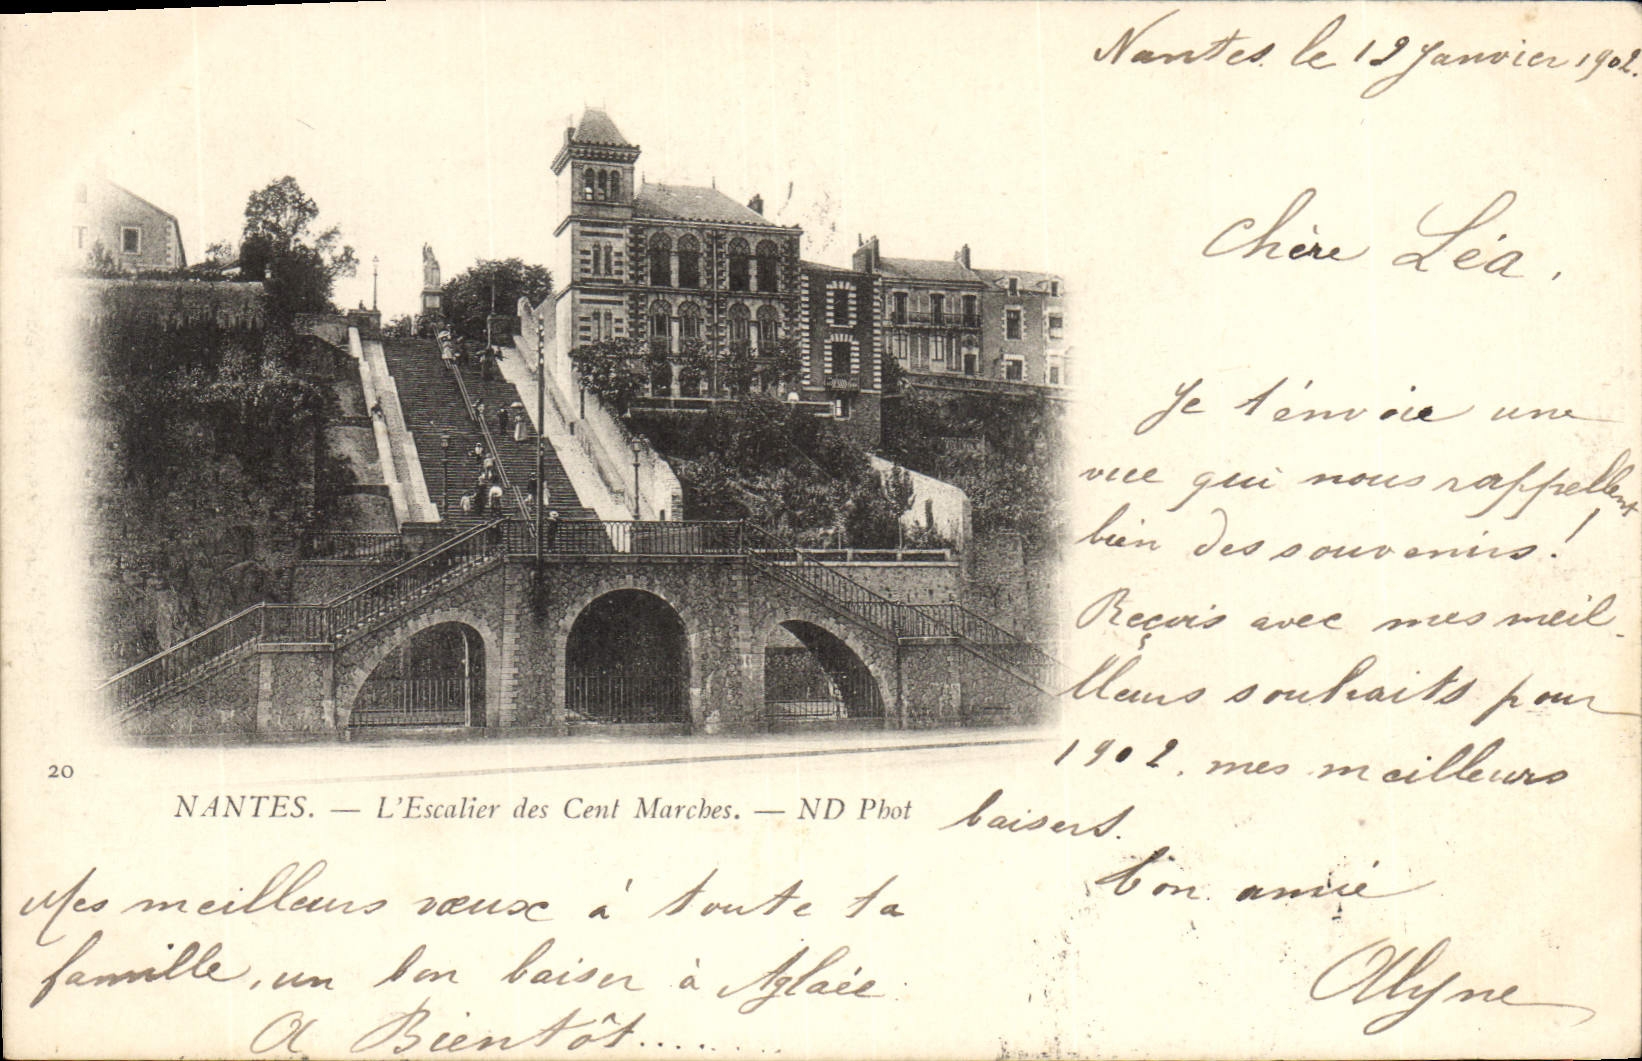 Nantes. le 12 Janvier 1902.
Chère Léa,
Je t'envoie une
vue qui nous rappellent
bien des souvenirs!
Reçois avec mes meil-
lleurs souhaits pour
1902. mes meilleurs
baisers.
Ton amie
Alyne
20
NANTES. — L'Escalier des Cent Marches. — ND Phot
Mes meilleurs vœux à toute ta
famille, un bon baiser à Aglaée
A Bientôt........